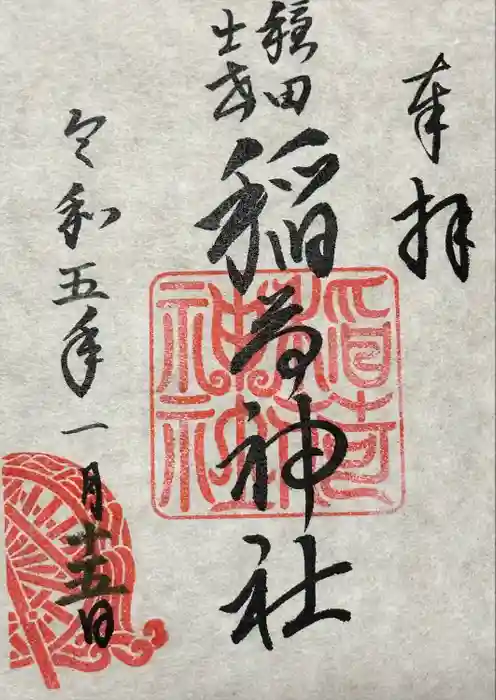 奉拝
出世
稲荷神社
稲荷
神社
令和五年一月十五日